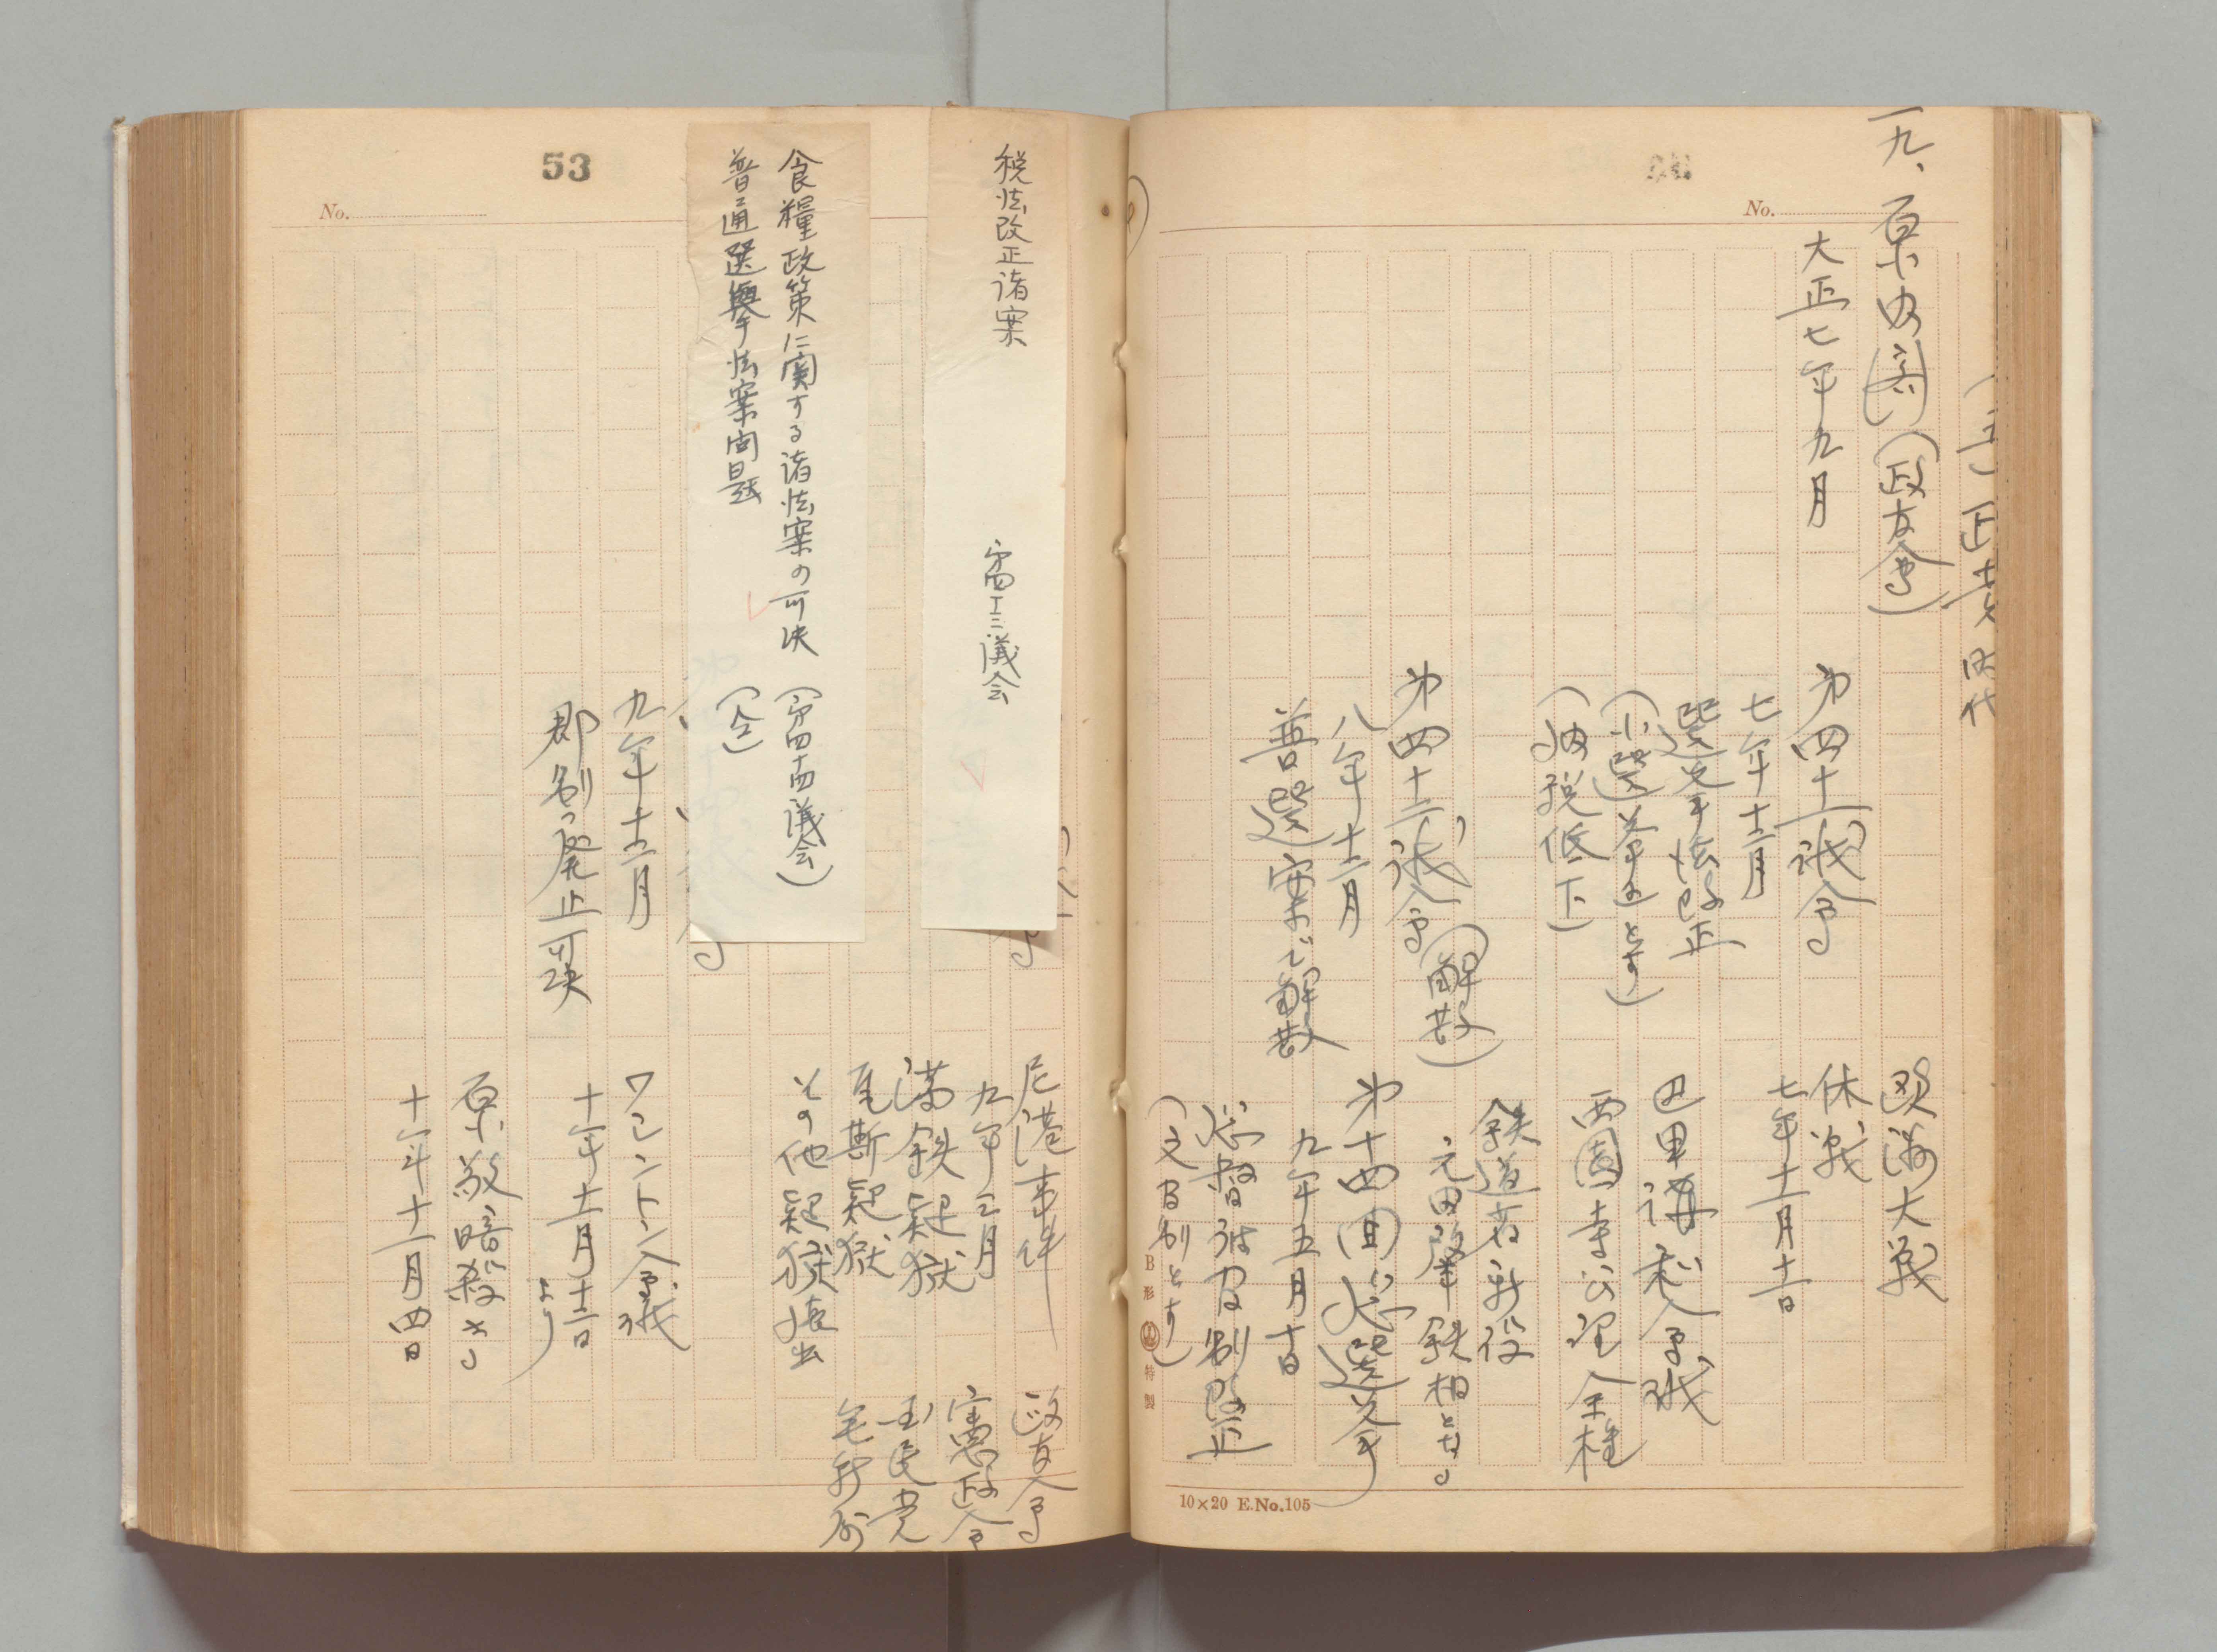 No.
(三)正 時代
一九、原内閣(政友会)
大正七年九月
第四十一議会
七年十二月
選挙法改正
(小選挙区とす)
(納税低下)
第四十二議会(解散)
八年十二月
普選案で解散
欧洲大戦
休戦
七年十一月十一日
巴里講和会議
西園寺公望全権
鉄道省新設
元田肇鉄相となる
第十四回総選挙
九年五月十日
総督府官制改正
(文官制とす)
B形 特製
10×20 E.No.105
53
No.
税法改正諸案
第四十三議会
食糧政策に関する諸法案の可決 (第四十四議会)
普通選挙法案問題 (仝)
九年十二月
郡制廃止可決
尼港事件
九年三月
満鉄疑獄
瓦斯疑獄
その他疑獄続出
ワシントン会議
十年十一月十二日より
原敬暗殺さる
十年十一月四日
政友会
憲政会
国民党